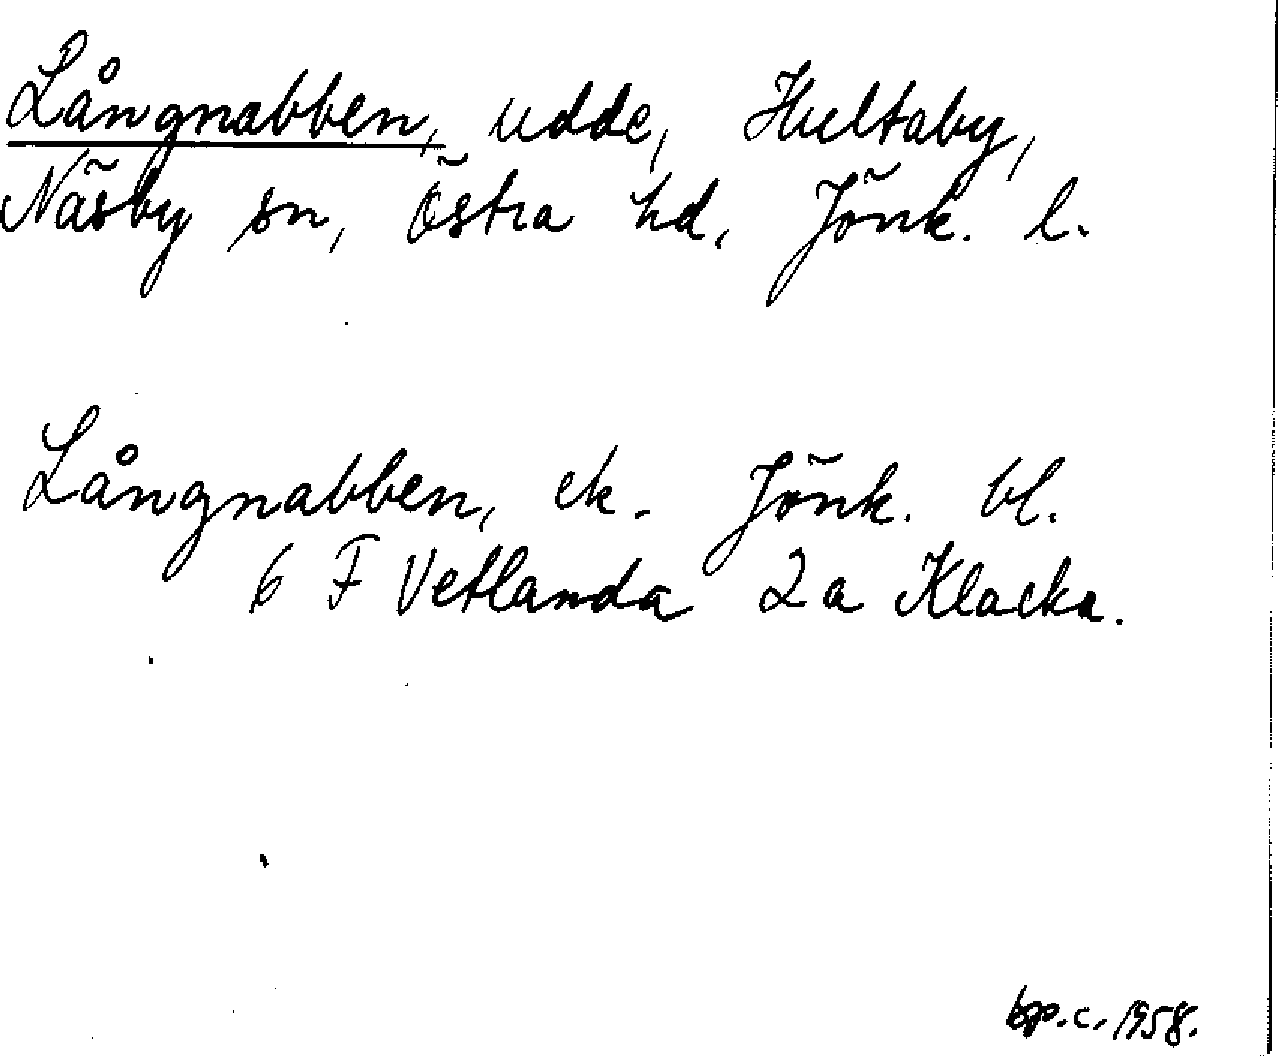 Långnabben, udde, Hultaby,
Näsby sn, Östra hd, Jönk. l.
Långnabben, ek. Jönk. bl.
6 F Vetlanda 2a Klacka.
bp.c. 1958.